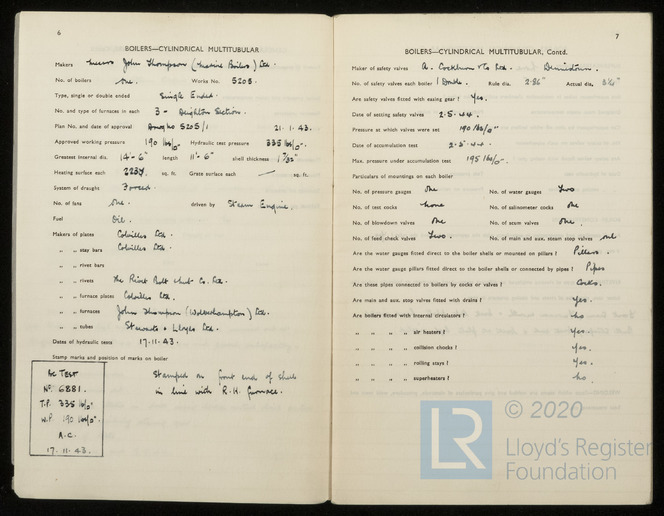 6
BOILERS—CYLINDRICAL MULTITUBULAR
Makers Messrs John Thompson (Marine Boilers) Ltd.
No. of boilers One. Works No. 5205.
Type, single or double ended Single Ended.
No. and type of furnaces in each 3 - Deighton Section.
Plan No. and date of approval 5205/1 21.1.43.
Approved working pressure 190 lbs/□" Hydraulic test pressure 335 lbs/□".
Greatest internal dia. 14'-6" length 11'-6" shell thickness 1 9/32"
Heating surface each 2234. sq. ft. Grate surface each — sq. ft.
System of draught Forced.
No. of fans One. driven by Steam Engine.
Fuel Oil.
Makers of plates Colvilles Ltd.
„ „ stay bars Colvilles Ltd.
„ „ rivet bars
„ „ rivets The Rivet Bolt & Nut Co. Ltd.
„ „ furnace plates Colvilles Ltd.
„ „ furnaces John Thompson (Wolverhampton) Ltd.
„ „ tubes Stewarts & Lloyds Ltd.
Dates of hydraulic tests 17.11.43.
Stamp marks and position of marks on boiler
Stamped on front end of shell
in line with R.H. furnace.
TEST
No. 6881.
T.P. 335 lb/□"
W.P. 190 lbs/□".
A.C.
17.11.43.
7
BOILERS—CYLINDRICAL MULTITUBULAR, Contd.
Maker of safety valves A. Cockburn & Co Ltd. Dennistown.
No. of safety valves each boiler 1 Double. Rule dia. 2.86" Actual dia. 3¼"
Are safety valves fitted with easing gear? Yes.
Date of setting safety valves 2.5.44.
Pressure at which valves were set 190 lbs/□"
Date of accumulation test 2.5.44.
Max. pressure under accumulation test 195 lbs/□".
Particulars of mountings on each boiler
No. of pressure gauges One No. of water gauges Two
No. of test cocks None No. of salinometer cocks One
No. of blowdown valves One No. of scum valves One.
No. of feed check valves Two. No. of main and aux. steam stop valves one
Are the water gauges fitted direct to the boiler shells or mounted on pillars? Pillars.
Are the water gauge pillars fitted direct to the boiler shells or connected by pipes? Pipes
Are these pipes connected to boilers by cocks or valves? Cocks.
Are main and aux. stop valves fitted with drains? Yes.
Are boilers fitted with internal circulators? No
„ „ „ „ air heaters? Yes.
„ „ „ „ collision chocks? Yes.
„ „ „ „ rolling stays? Yes.
„ „ „ „ superheaters? No.
LR
© 2020
Lloyd's Register
Foundation